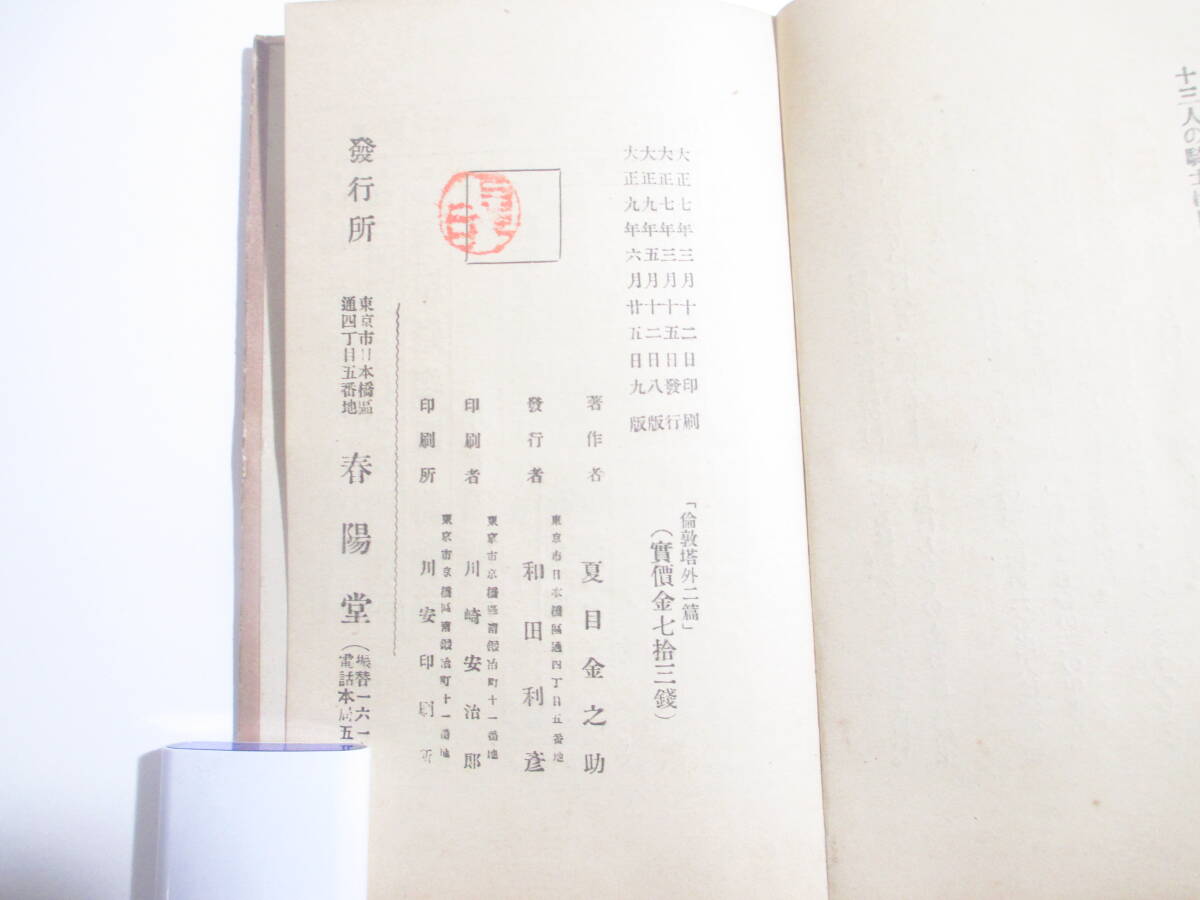 十三人の騎士
大正七年三月十二日印刷
大正七年三月十五日發行
大正九年五月十二日八版
大正九年六月廿五日九版
「倫敦塔外二篇」
(實價金七拾三錢)
著作者 夏目金之助
東京市日本橋區通四丁目五番地
發行者 和田利彥
東京市京橋區南鍛冶町十一番地
印刷者 川崎安治郎
東京市京橋區南鍛冶町十一番地
印刷所 川安印刷所
發行所 東京市日本橋區通四丁目五番地 春陽堂
(振替一六一
電話本局五